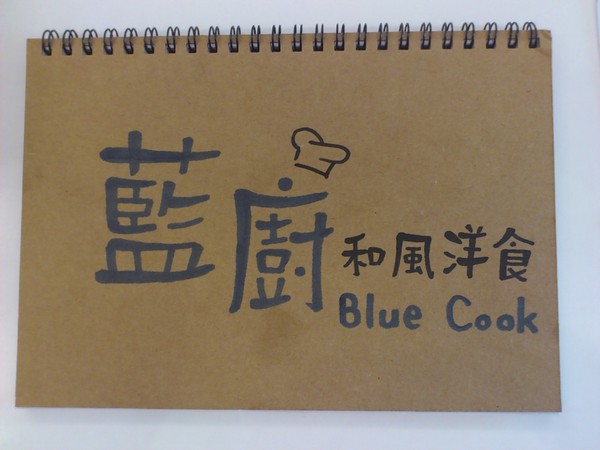 藍廚
和風洋食
Blue Cook